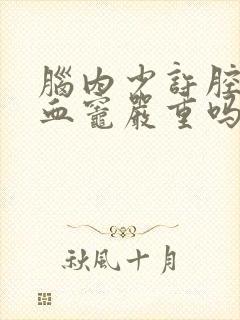 腦內少許腔
血竈嚴重嗎
秋風十月